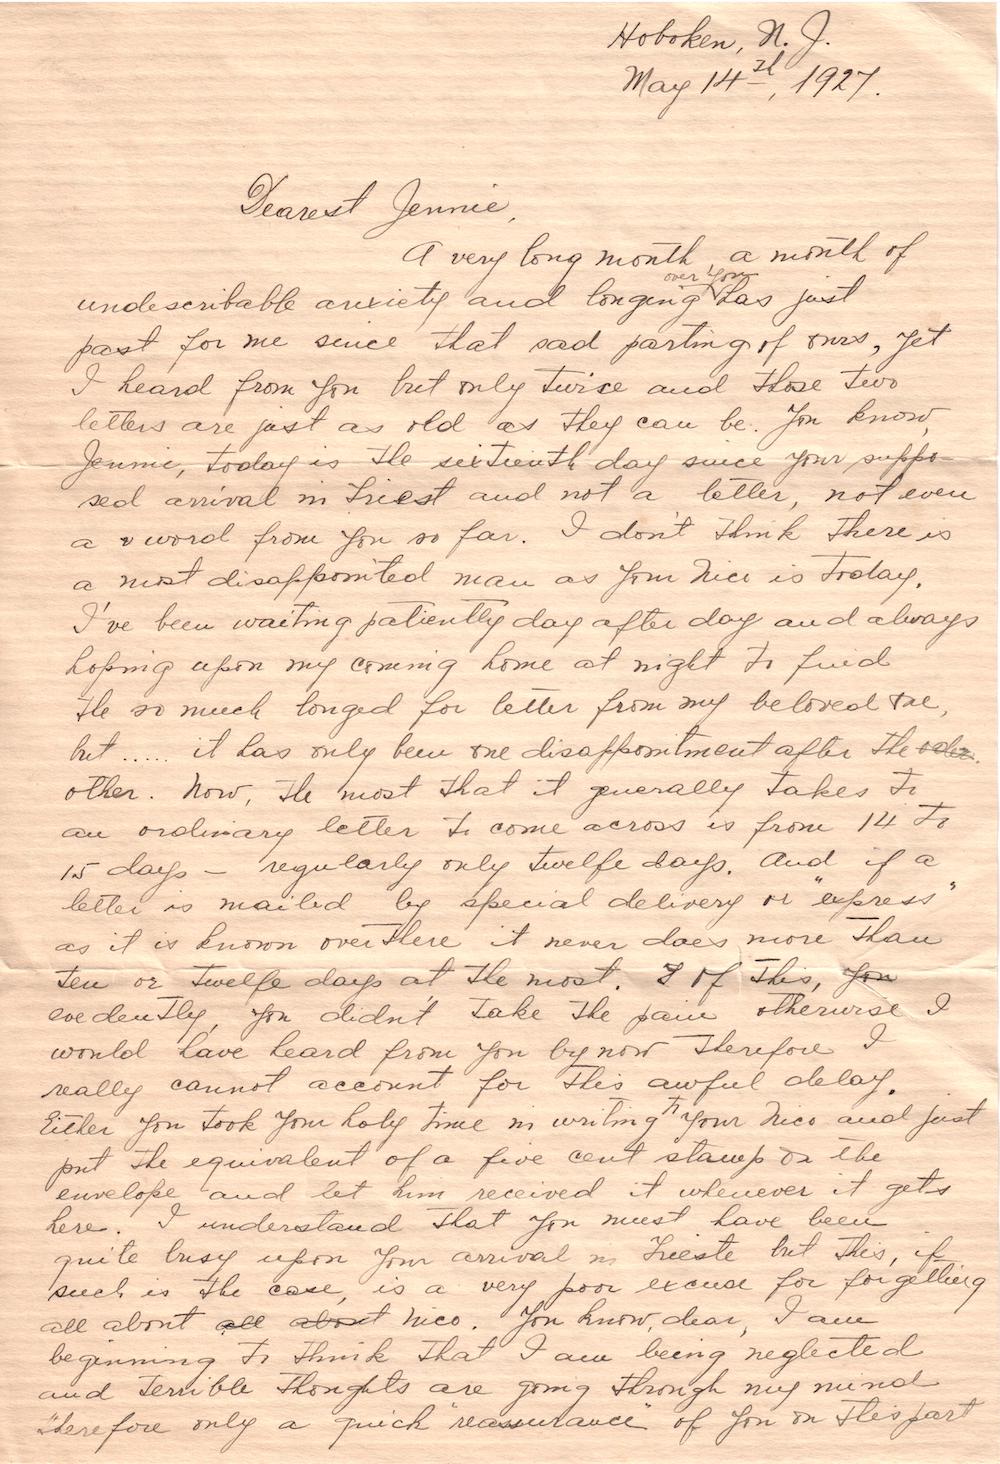 Hoboken, N. J.
May 14th, 1927.
Dearest Jennie,
A very long month, a month of
over you
undescribable anxiety and longing has just
past for me since that sad parting of ours, yet
I heard from you but only twice and those two
letters are just as old as they can be. You know,
Jennie, today is the sixteenth day since your suppo-
sed arrival in Triest and not a letter, not even
a word from you so far. I don't think there is
a most disappointed man as your Nico is today.
I've been waiting patiently day after day and always
hoping upon my coming home at night to find
the so much longed for letter from my beloved one,
but ..... it has only been one disappointment after the
other. Now, the most that it generally takes to
an ordinary letter to come across is from 14 to
15 days – regularly only twelfe days. And if a
letter is mailed by special delivery or "express"
as it is known over there it never does more than
ten or twelfe days at the most. Of this, you
evedently, you didn't take the pain otherwise I
would have heard from you by now therefore I
really cannot account for this awful delay.
Either you took your holy time in writing to your Nico and just
put the equivalent of a five cent stamp on the
envelope and let him received it whenever it gets
here. I understand that you must have been
quite busy upon your arrival in Trieste but this, if
such is the case, is a very poor excuse for forgetting
all about all about Nico. You know, dear, I am
beginning to think that I am being neglected
and terrible thoughts are going through my mind
therefore only a quick "reassurance" of you on this part